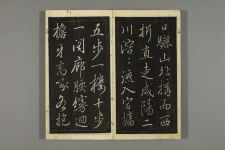 日驪山北構而西
折直走咸陽二
川溶〻流入宮墻
五步一樓十步
一閣廊腰縵迴
檐牙高啄各抱